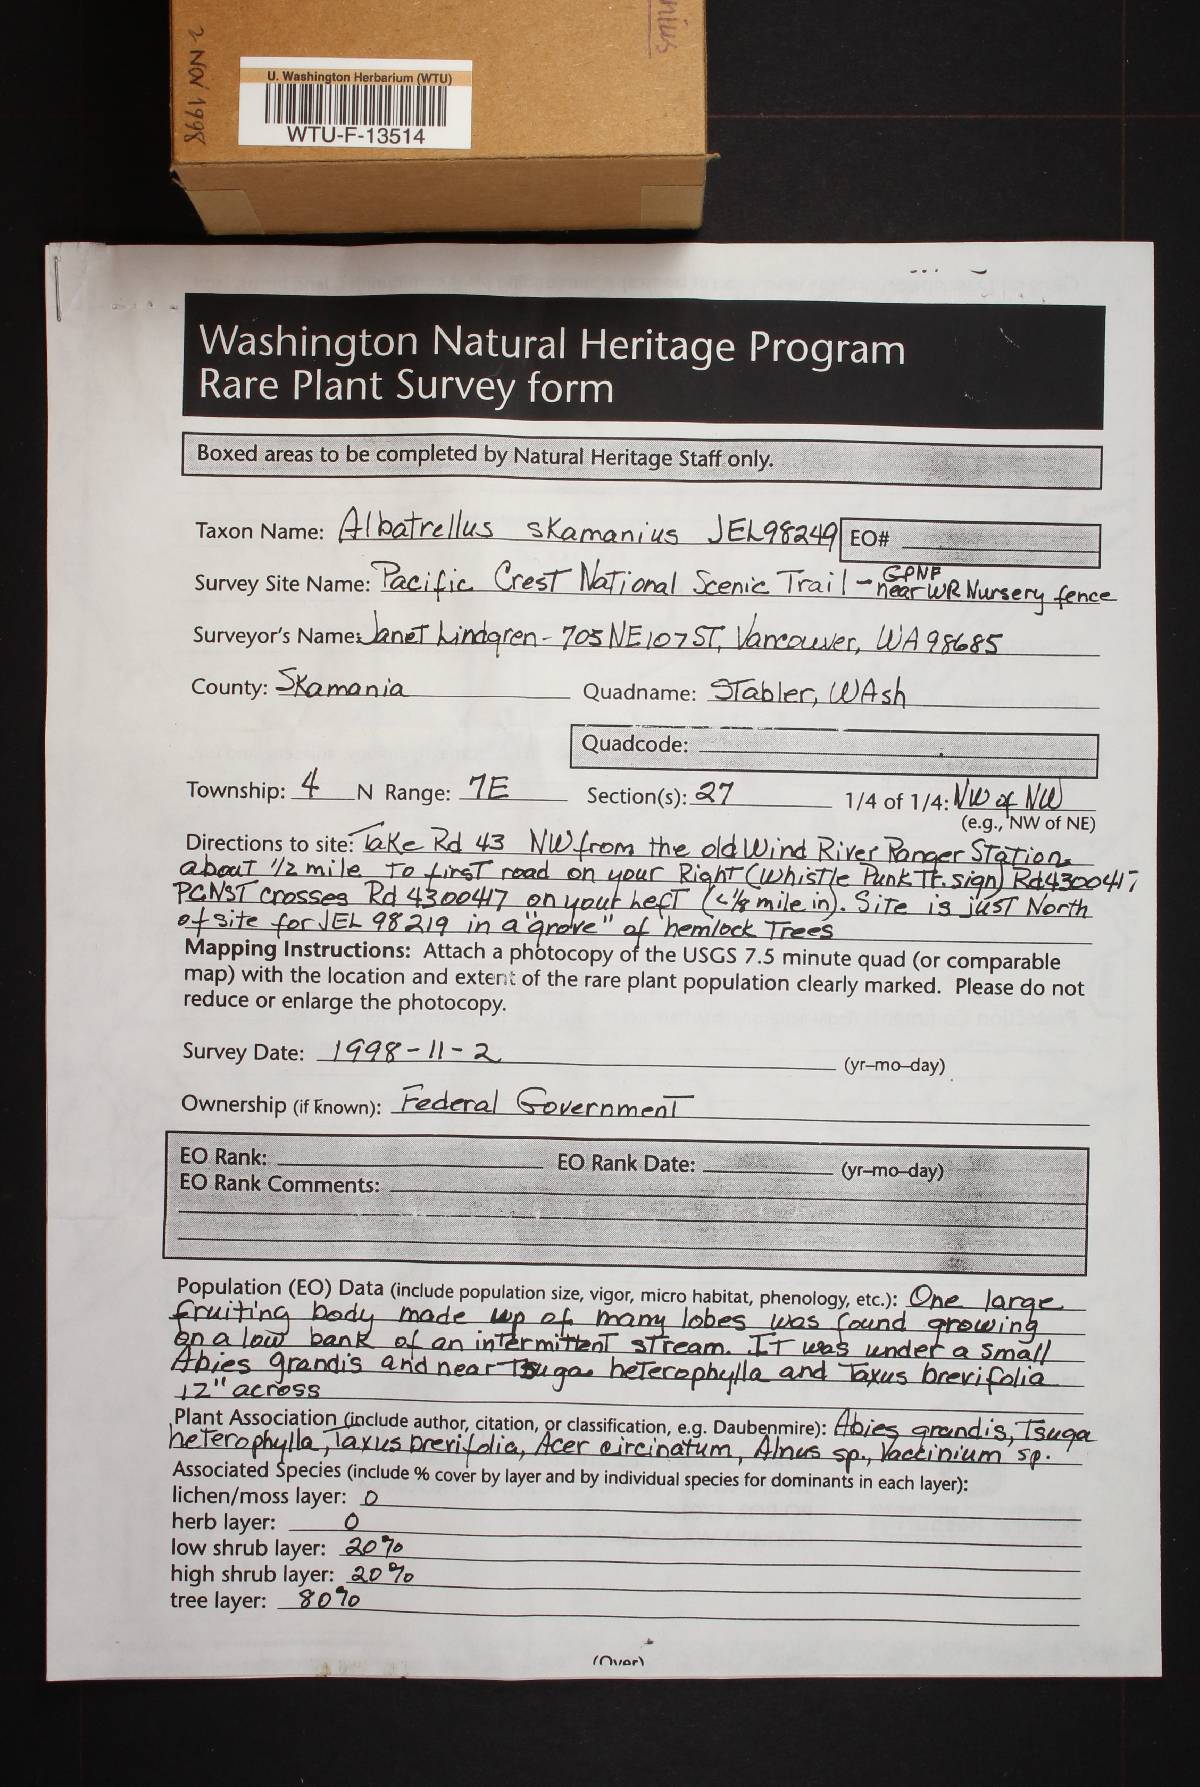 nius
2 NOV 1998
U. Washington Herbarium (WTU)
WTU-F-13514
Washington Natural Heritage Program
Rare Plant Survey form
Boxed areas to be completed by Natural Heritage Staff only.
Taxon Name: Albatrellus skamanius JEL98249 EO#
GPNF
Survey Site Name: Pacific Crest National Scenic Trail - near WR Nursery fence
Surveyor's Name: Janet Lindgren - 705 NE 107 ST, Vancouver, WA 98685
County: Skamania Quadname: Stabler, WAsh
Quadcode:
Township: 4 N Range: 7E Section(s): 27 1/4 of 1/4: NW of NW
(e.g., NW of NE)
Directions to site: Take Rd 43 NW from the old Wind River Ranger Station,
about 1/2 mile to first road on your Right (Whistle Punk Tr. sign) Rd 4300417
PCNST crosses Rd 4300417 on your Left (<1/8 mile in). Site is just North
of site for JEL 98219 in a "grove" of hemlock Trees
Mapping Instructions: Attach a photocopy of the USGS 7.5 minute quad (or comparable
map) with the location and extent of the rare plant population clearly marked. Please do not
reduce or enlarge the photocopy.
Survey Date: 1998-11-2 (yr-mo-day)
Ownership (if known): Federal Government
EO Rank: EO Rank Date: (yr-mo-day)
EO Rank Comments:
Population (EO) Data (include population size, vigor, micro habitat, phenology, etc.): One large
fruiting body made up of many lobes was found growing
on a low bank of an intermittent stream. It was under a small
Abies grandis and near Tsuga heterophylla and Taxus brevifolia
12" across
Plant Association (include author, citation, or classification, e.g. Daubenmire): Abies grandis, Tsuga
heterophylla, Taxus brevifolia, Acer circinatum, Alnus sp., Vaccinium sp.
Associated Species (include % cover by layer and by individual species for dominants in each layer):
lichen/moss layer: 0
herb layer: 0
low shrub layer: 20%
high shrub layer: 20%
tree layer: 80%
(Over)